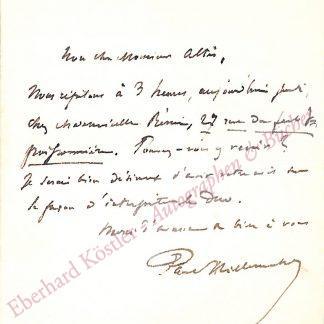 Mon cher Monsieur Altès,
Nous répétons à 3 heures, aujourd'hui jeudi
chez Mademoiselle, 27 rue du faubg
poissonnière. Pouvez-vous y venir ?
Je serais bien désireux d'avoir votre avis sur
la façon d'interpréter le Duo.
Merci d'avance et bien à vous
Paul Hillemacher
Eberhard Köstler Autographen & Bücher